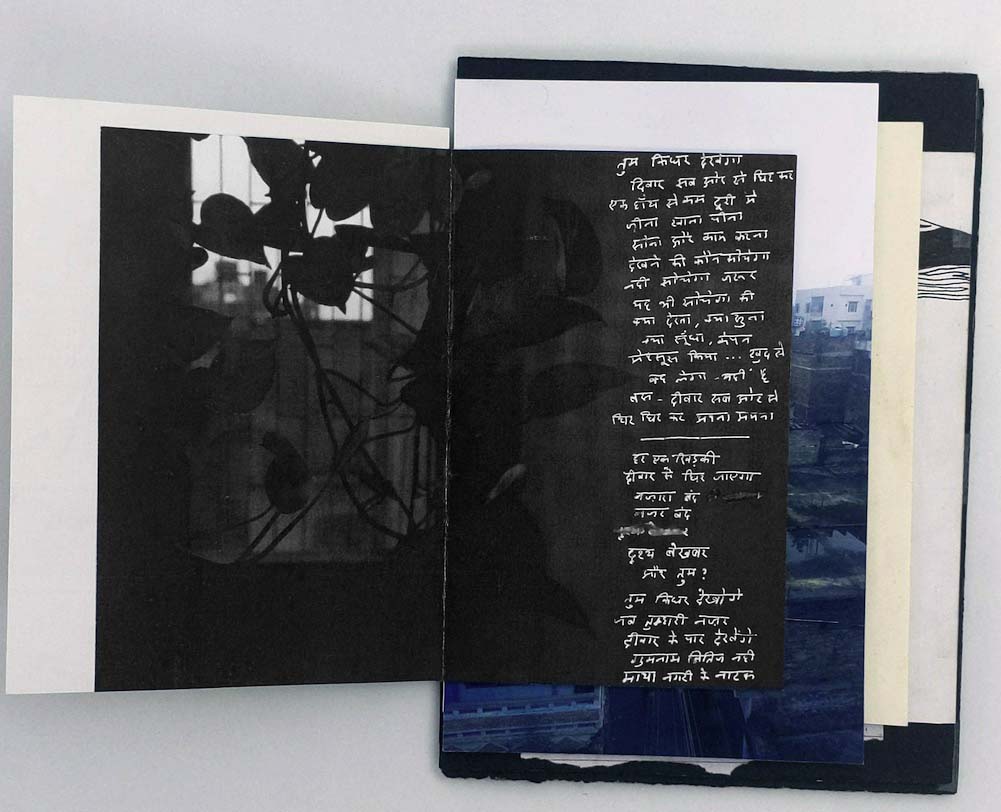 तुम किधर देखेगा
दिवार सब ओर से घिर कर
एक हाँथ से कम दूरी में
जीना खाना पीना
सोना और काम करना
देखने की कौन सोचेगा
नही सोचेगा जरूर
यह भी सोचेगा की
क्या देखा, क्या सुना
क्या सूँघा, कंपन
मेहसूस किया ... खुद से
कह लेगा - नहीं है
बस - दीवार सब ओर से
घिर घिर कर अपना अपना
हर एक खिड़की
दीवार से घिर जाएगा
नज़ारा बंद
नजर बंद
दृश्य बेखबर
और तुम?
तुम किधर देखोगे
जब तुम्हारी नज़र
दीवार के पार देखेंगे
गुमनाम क्षितिज नही
माया नगरी के नाटक